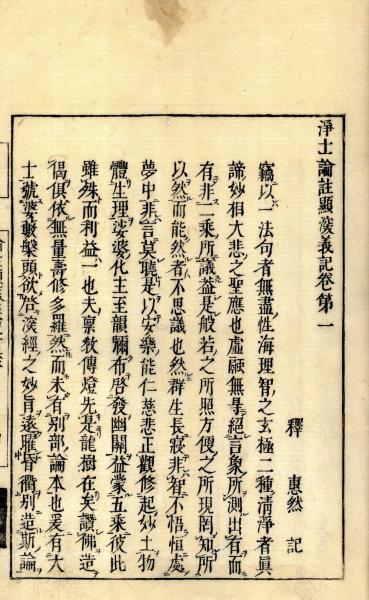 淨土論註顯深義記卷第一
釋　惠然　記
竊以一法句者無盡性海理智之玄極二種清淨者眞
諦妙相大悲之聖應也虛融無㝵絕言象所測出有而
有非二乘所議蓋是般若之所照方便之所現罔知所
以然而能然者不思議也然群生長寢非智不悟恒處
夢中非言莫驚是以安樂能仁慈悲正觀修起妙土物
體生理娑婆化主至韻彌布啓發幽關益蒙五乘彼此
雖殊而利益一也夫稟敎傳燈先是龍樹在矣讚佛造
偈俱依無量壽修多羅然而未有別部論本也爰有大
士號婆藪槃頭欲啓深經之妙旨遠雁昏衢別造斯論